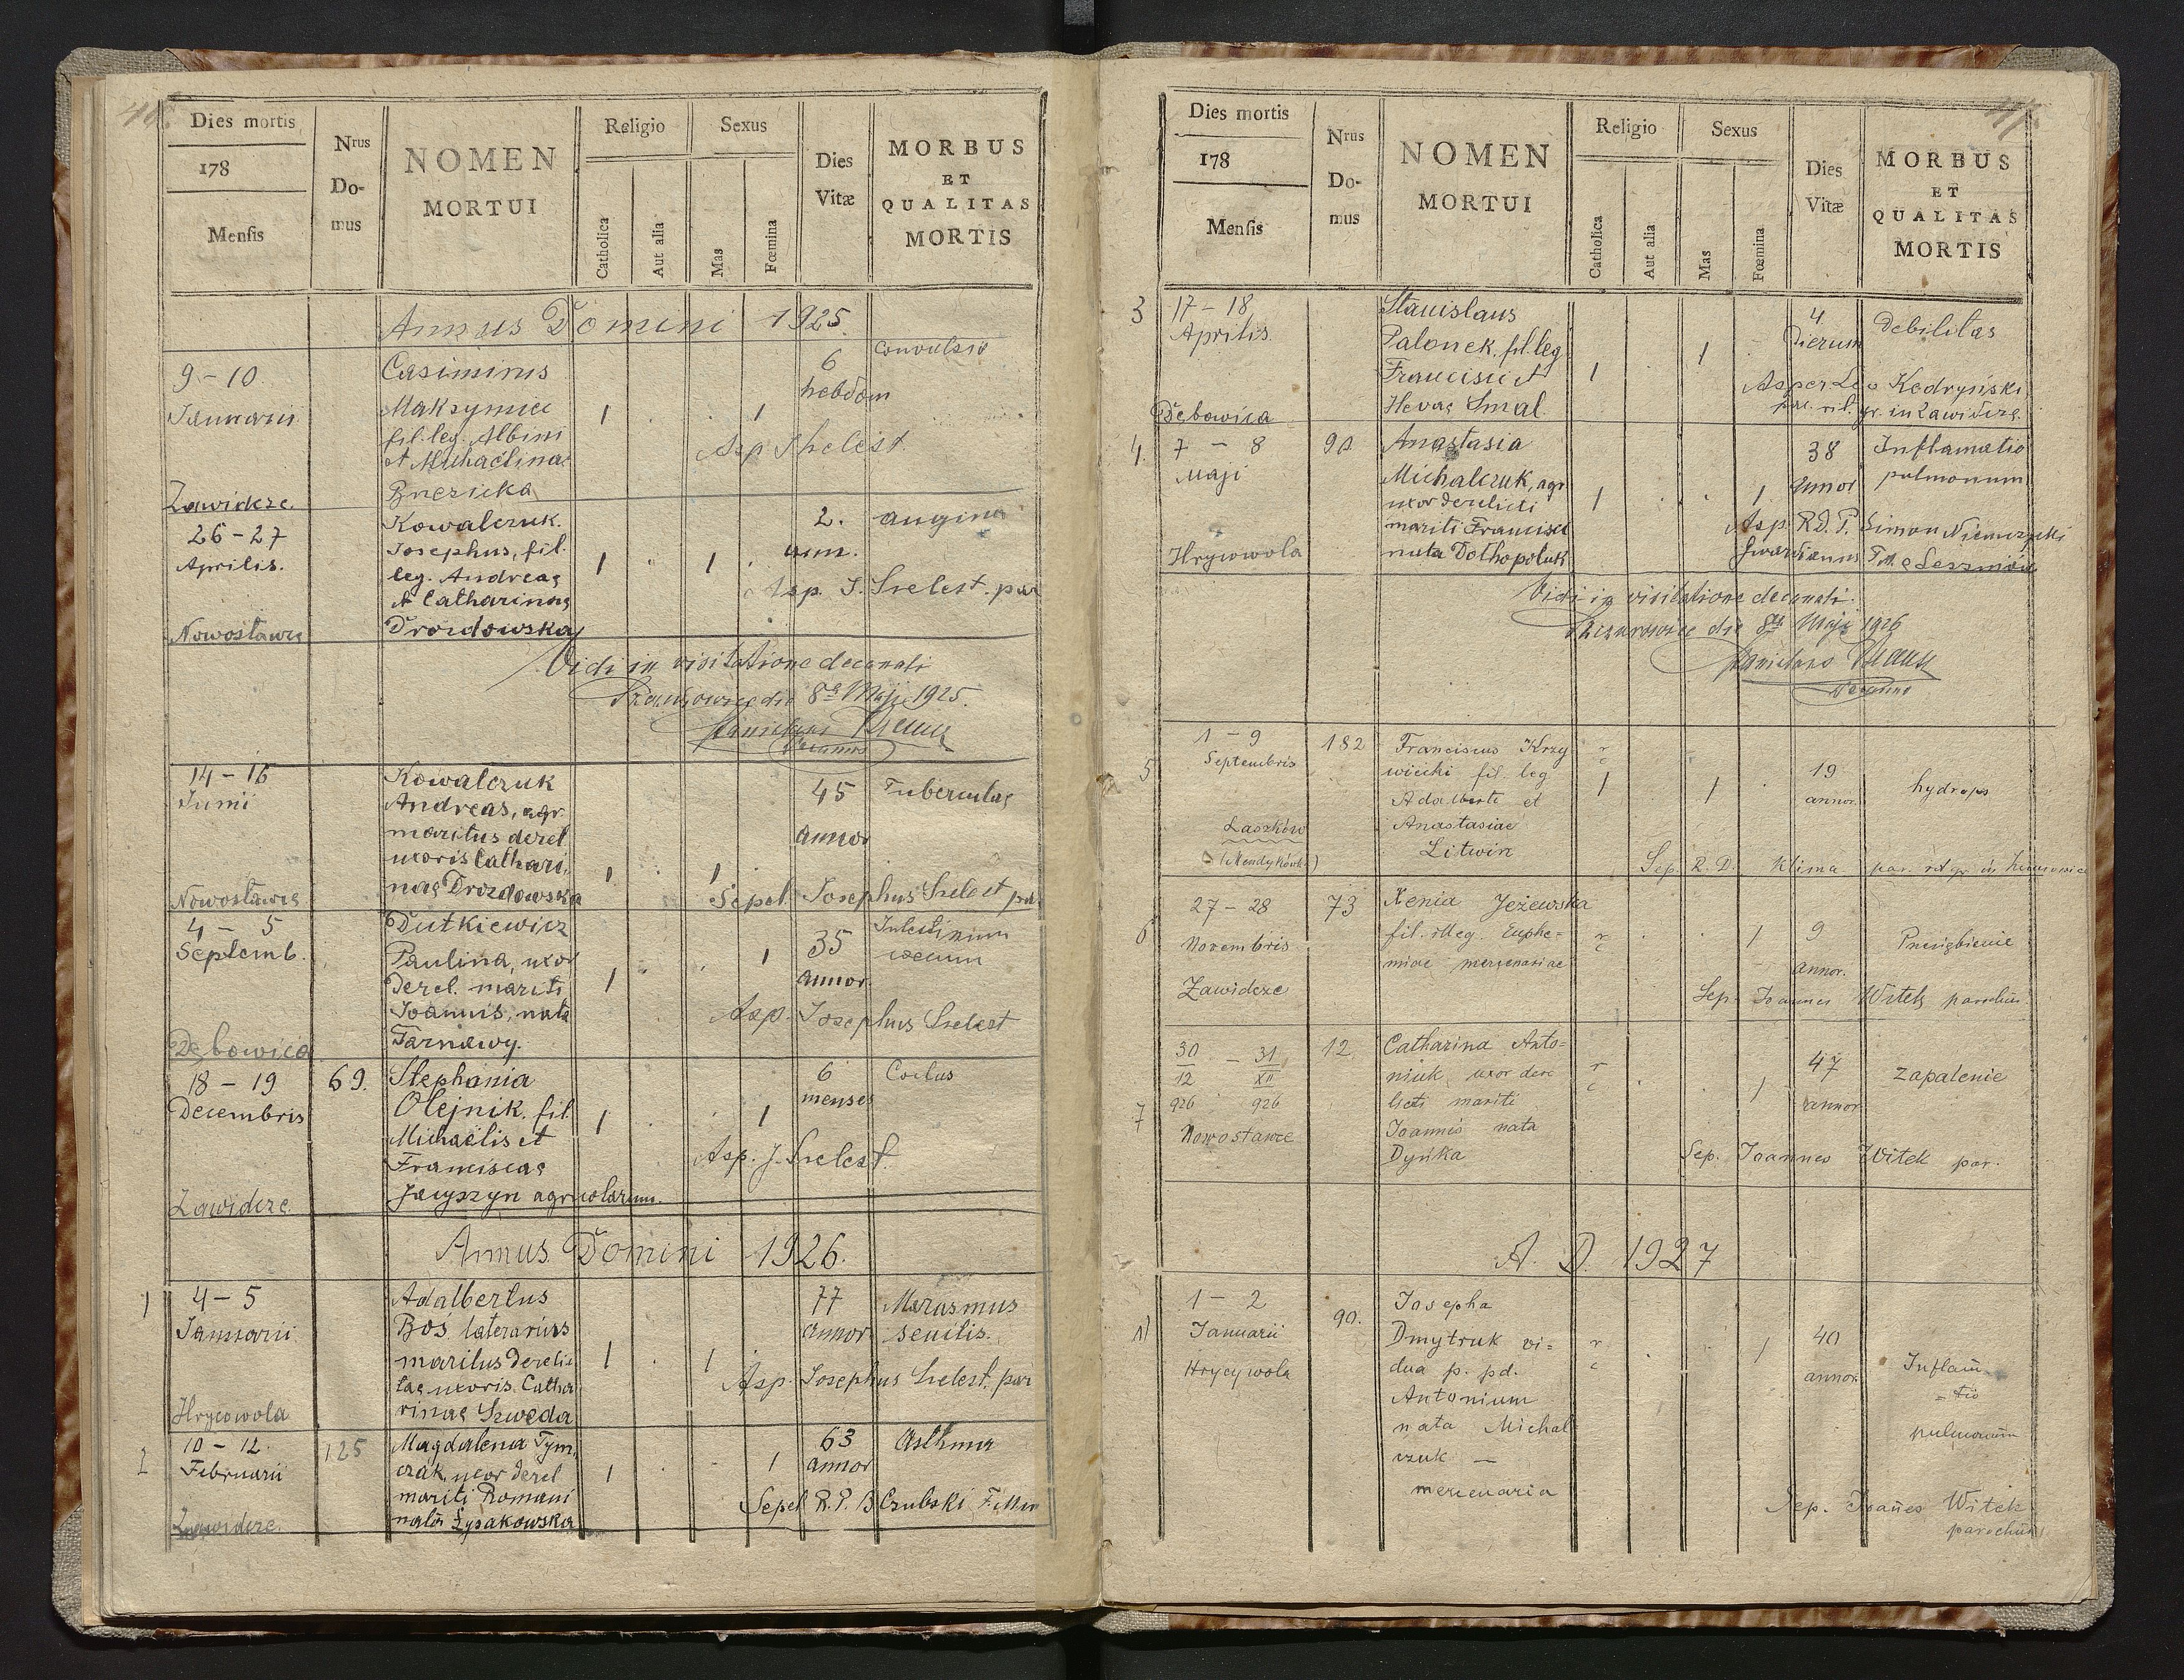 Dies mortis
178
Mensis
Nrus
Do-
mus
NOMEN
MORTUI
Religio
Catholica
Aut alia
Sexus
Mas
Fœmina
Dies
Vitæ
MORBUS
ET
QUALITAS
MORTIS
Annus Domini 1925.
9 - 10
Januarii
Zawidcze.
Casimirus
Maksymiec
fil. leg. Albini
et Michaëlinae
1 . . 1
6
hebdom
Convulsio
Asp Szelest.
26 - 27
Aprilis.
Nowostawce
Kowalczuk.
Josephus, fil.
leg. Andreae
et Catharinae
Drozdowska
1 . 1 .
2.
ann.
angina
Asp. J. Szelest. par
Vidi in visitatione decanali
die 8a Maji 1925.
Decanus
14 - 16
Junii
Nowostawce
Kowalczuk
Andreas, agr.
maritus derel.
uxoris Cathari,
nae Drozdowska
1 . 1
45
annor
Tuberculae
Sepel. Josephus Szelest par
4 - 5
Septemb.
Dębowica
Dutkiewicz
Paulina, uxor
derel. mariti
Joannis, nata
Tarnawy.
1 . . 1
35
annor.
Asp. Josephus Szelest
18 - 19
Decembris
Zawidcze.
69.
Stephania
Olejnik. fil.
Michaëlis et
Franciscae
Jacyszyn agricolarum.
1 . . 1
6
menses
Asp. J. Szelest.
Annus Domini 1926.
1
4 - 5
Januarii
Hrycowola
Adalbertus
Boś laterarius
maritus derelic
tae uxoris Catha
rinae Szweda
1 . 1
77
annor
Marasmus
senilis.
Asp. Josephus Szelest. par
2
10 - 12.
Februarii
Zawidcze.
125
Magdalena Tym,
czak, uxor derel
mariti Romani
nata Łysakowska
1 . . 1
63
annor
Asthma
Sepel R. P. B Czubski F. Min
Dies mortis
178
Mensis
Nrus
Do-
mus
NOMEN
MORTUI
Religio
Catholica
Aut alia
Sexus
Mas
Fœmina
Dies
Vitæ
MORBUS
ET
QUALITAS
MORTIS
3
17 - 18
Aprilis.
Dębowica
Stanislaus
Palonek. fil. leg.
Francisci et
Hevae Smal.
1 1 .
4
dierum
Debilitas
Asper Leo Kedryński
par. rit. gr. in Zawidcze.
4.
7 - 8
Maji
Hrycowola
90.
Anastasia
Michalczuk, agr.
uxor derelicti
mariti Francisci
nata Dołhopoluk
1 . . 1
38
annor
Inflamatio
pulmonum
Asp. R. D. P. Simon
Vidi in visitatione decanali.
die 8va Maji 1926
Decanus
5
1 - 9
Septembris
Laszków
182
Franciscus Krzy
wiecki fil. leg
Adalberti et
Anastasiae
Litwin
r
c
1 1 .
19
annor.
hydrops
Sep. R. D. Klima par. rit gr. in
6
27 - 28
Novembris
Zawidcze
73
Xenia Jeżewska
fil. illeg. Euphe=
miae mercenariae
r
c
. . 1
9
annor.
Przeziębienie
Sep. Joannes Witek parochus.
7
30 - 31
12 XII
926 926
Nowostawce
12.
Catharina Anto=
niuk uxor dere
licti mariti
Joannis nata
Dyńka
r
c
. 1
47
annor
zapalenie
Sep. Joannes Witek par.
A. D. 1927
1
1 - 2
Januarii
Hrycywola
90.
Josepha
Dmytruk vi=
dua p. pd.
Antonium
nata Michal
czuk —
mercenaria
r
c
. 1
40
annor.
Inflama=
= tio
pulmonum
Sep. Joañes Witek
parochus